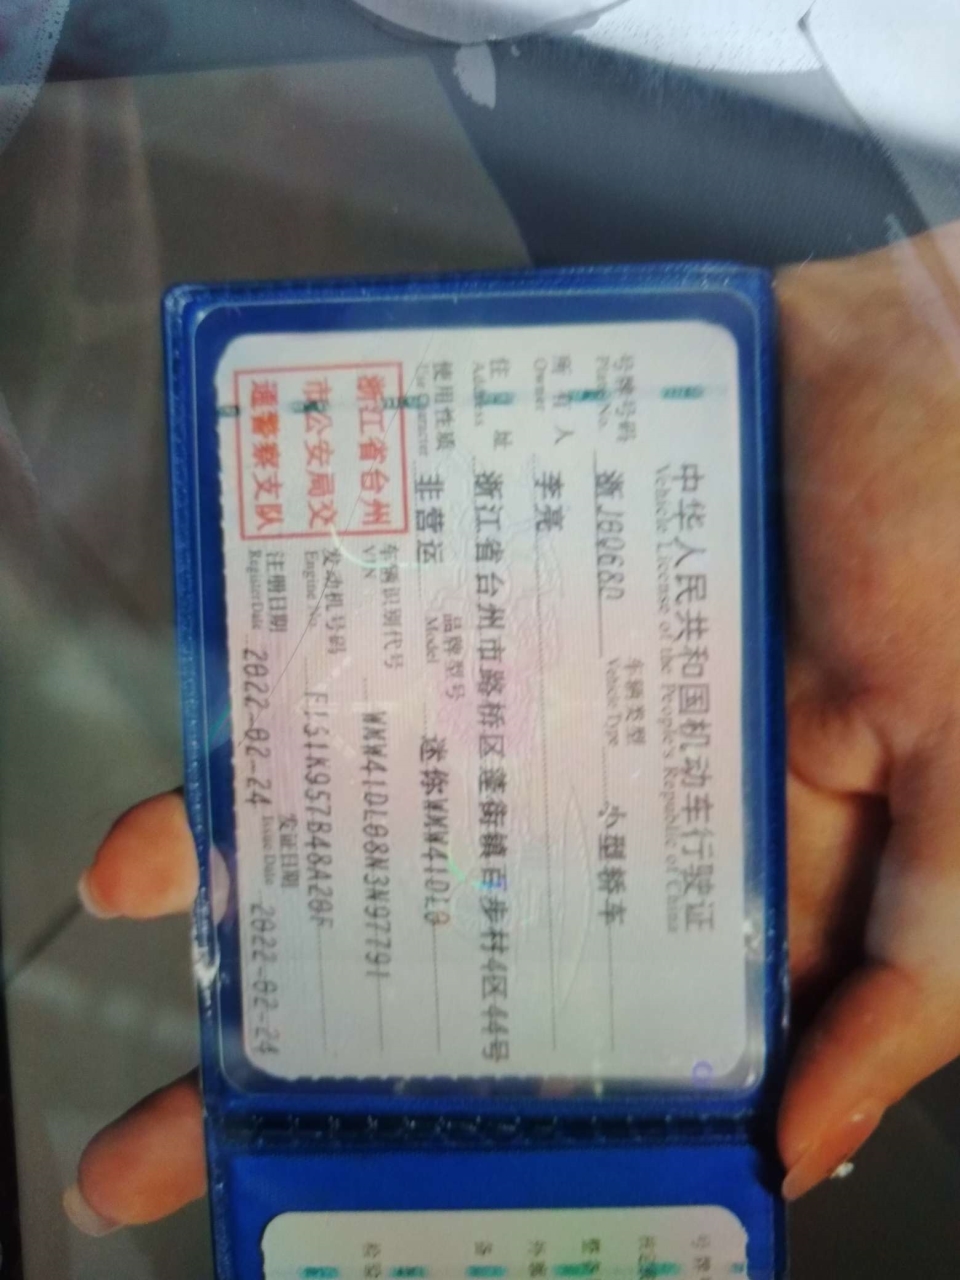 中华人民共和国机动车行驶证
Vehicle License of the People's Republic of China
号牌号码 浙J8Q68D 车辆类型 小型轿车
Plate No. Vehicle Type
所有人 李亮
Owner
住址 浙江省台州市路桥区蓬街镇百步村4区44号
Address
使用性质 非营运 品牌型号 迷你WMW41DL0
Use Character Model
浙江省台州
市公安局交
通警察支队
车辆识别代号 WMW41DL08N3N97791
VIN
发动机号码
Engine No.
注册日期 2022-02-24 发证日期 2022-02-24
Register Date Issue Date
号牌
检验